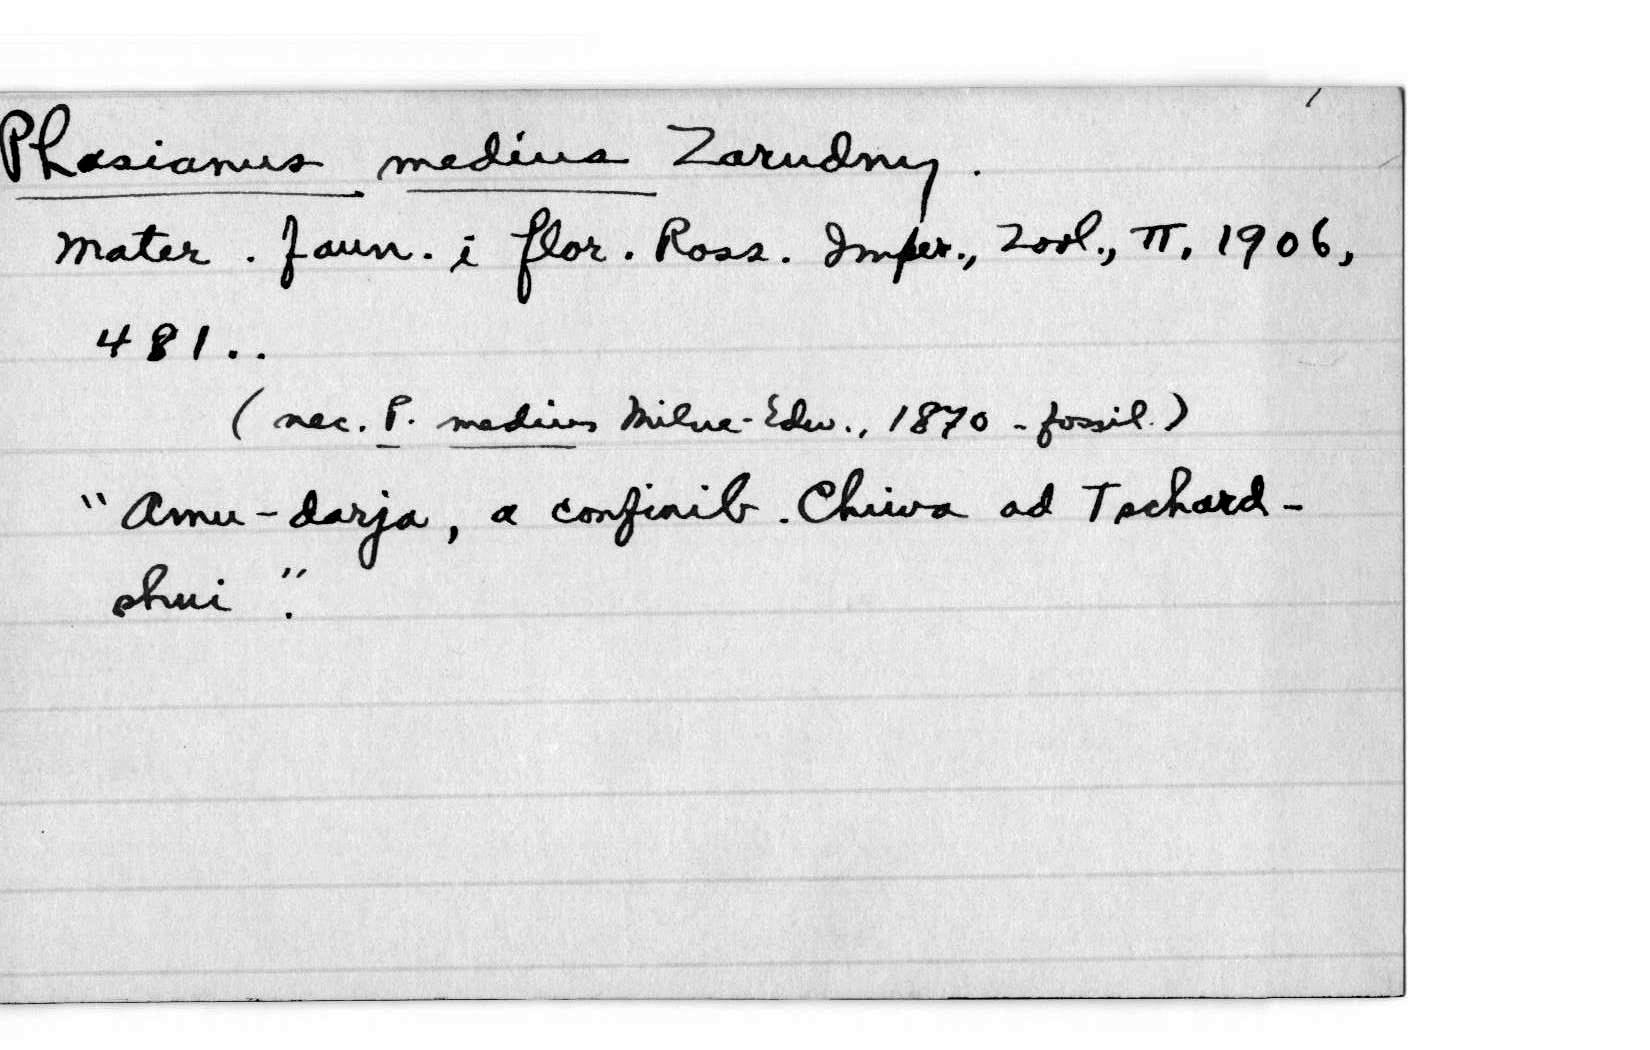 Phasianus medius Zarudny.
Mater. faun. i flor. Ross. Imper., Zool., II, 1906,
481..
(nec. P. medius Milne-Edw., 1870 - fossil.)
"Amu-darja, a confinib. Chiwa ad Tschard-
shui".